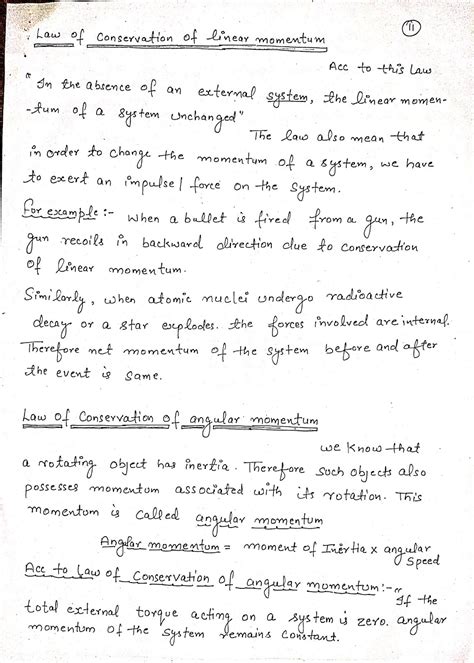 11
Law of Conservation of linear momentum
Acc to this Law
"In the absence of an external system, the linear momen-
-tum of a system unchanged"
The law also mean that
in order to change the momentum of a system, we have
to exert an impulse/force on the system.
For example:- when a bullet is fired from a gun, the
gun recoils in backward direction due to conservation
of linear momentum.
Similarly, when atomic nuclei undergo radioactive
decay or a star explodes. the forces involved are internal.
Therefore net momentum of the system before and after
the event is same.
Law of Conservation of angular momentum
we know that
a rotating object has inertia. Therefore such objects also
possesses momentum associated with its rotation. This
momentum is called angular momentum
Anglar momentum = moment of Inertia x angular
Speed
Acc to Law of Conservation of angular momentum:-
"If the
total external torque acting on a system is zero. angular
momentum of the system remains constant.